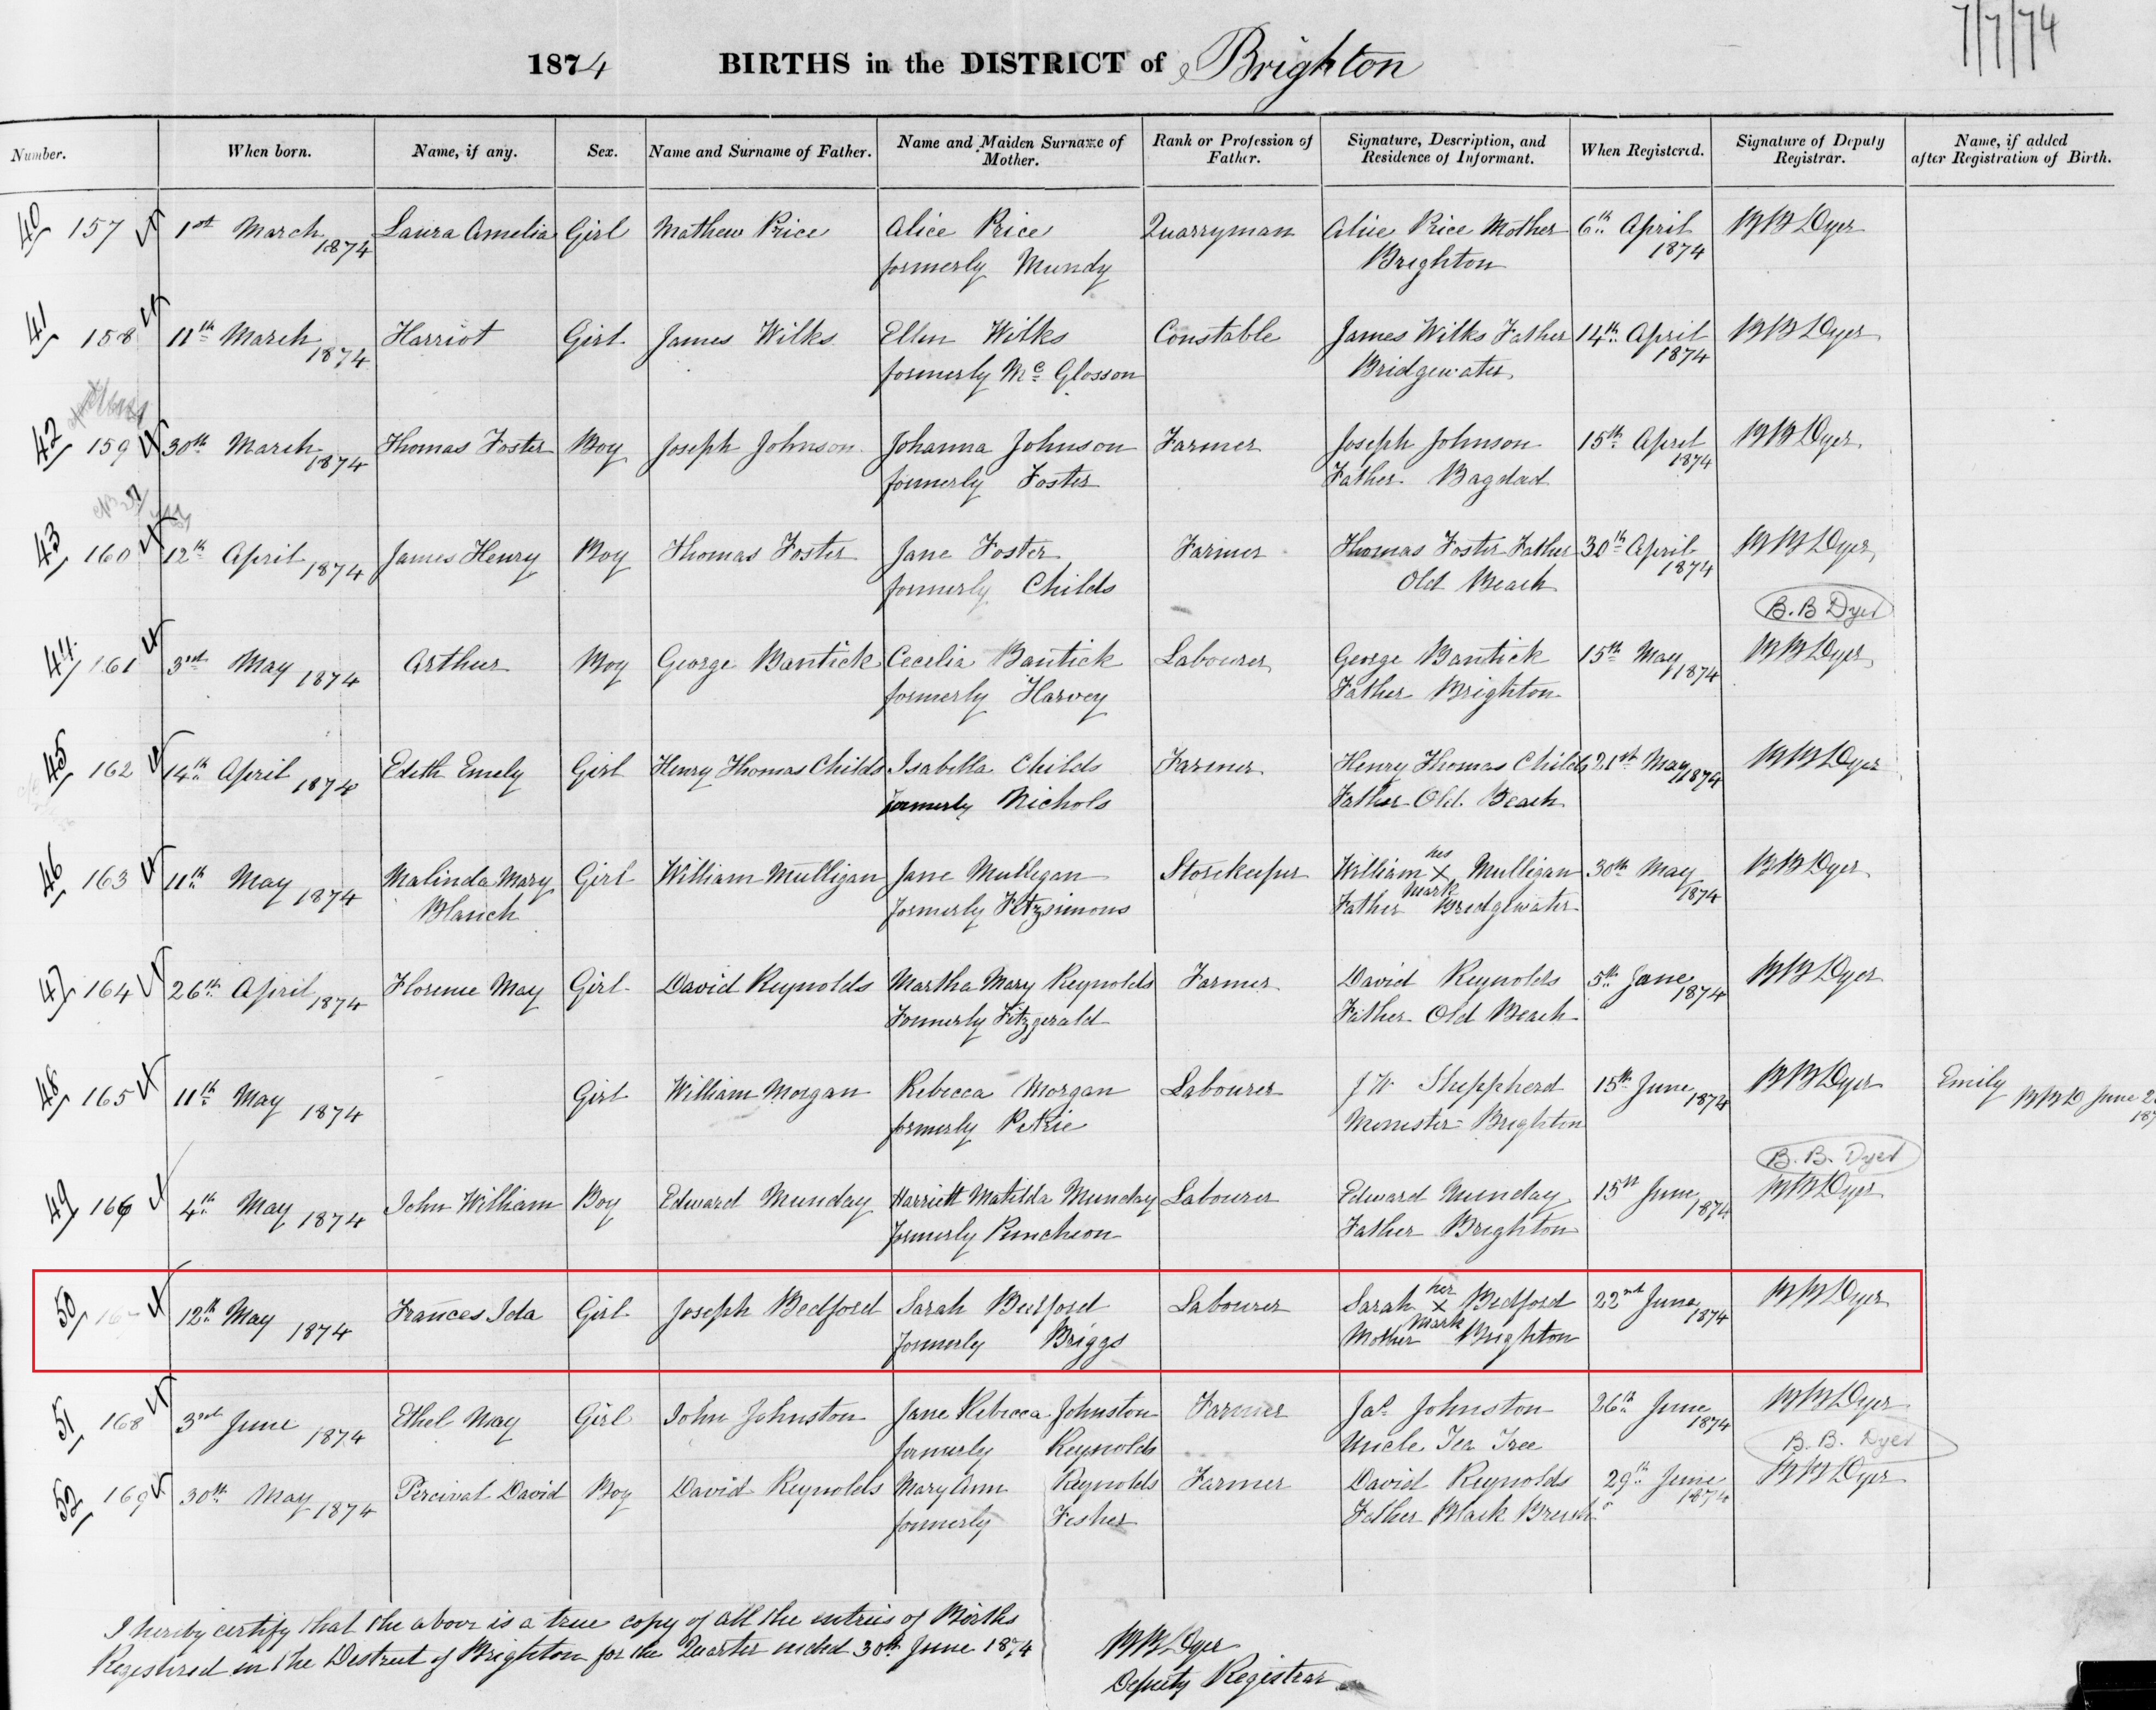 7/7/74
1874 BIRTHS in the DISTRICT of Brighton
Number. When born. Name, if any. Sex. Name and Surname of Father. Name and Maiden Surname of Mother. Rank or Profession of Father. Signature, Description, and Residence of Informant. When Registered. Signature of Deputy Registrar. Name, if added after Registration of Birth.
40 157 1st March 1874 Laura Amelia Girl Mathew Price Alice Price Quarryman Alice Price Mother 6th April 1874 BB Dyer
formerly Mundy Brighton
41 158 11th March 1874 Harriot Girl James Wilks Ellen Wilks Constable James Wilks Father 14th April 1874 BB Dyer
formerly Mc Glosson Bridgewater
42 159 30th March 1874 Thomas Foster Boy Joseph Johnson Johanna Johnson Farmer Joseph Johnson 15th April 1874 BB Dyer
formerly Foster Father Bagdad
43 160 12th April 1874 James Henry Boy Thomas Foster Jane Foster Farmer Thomas Foster Father 30th April 1874 BB Dyer
formerly Childs Old Beach
B.B Dyer
44 161 3rd May 1874 Arthur Boy George Bantick Cecelia Bantick Labourer George Bantick 15th May 1874 BB Dyer
formerly Harvey Father Brighton
45 162 14th April 1874 Edith Emely Girl Henry Thomas Childs Isabella Childs Farmer Henry Thomas Childs 21st May 1874 BB Dyer
formerly Nichols Father Old Beach
46 163 11th May 1874 Malinda Mary Girl William Mulligan Jane Mulligan Storekeeper William his x mark Mulligan 30th May 1874 BB Dyer
Blanch formerly Fitzsimons Father Bridgewater
47 164 26th April 1874 Florence May Girl David Reynolds Martha Mary Reynolds Farmer David Reynolds 5th June 1874 BB Dyer
Formerly Fitzgerald Father Old Beach
48 165 11th May 1874 Girl William Morgan Rebecca Morgan Labourer J W Sheppherd 15th June 1874 BB Dyer Emily
formerly Petrie Minister Brighton BBD June
B. B. Dyer
49 166 4th May 1874 John William Boy Edward Munday Harriett Matilda Munday Labourer Edward Munday 15th June 1874 BB Dyer
formerly Puncheon Father Brighton
50 167 12th May 1874 Frances Ida Girl Joseph Bedford Sarah Bedford Labourer Sarah her x mark Bedford 22nd June 1874 BB Dyer
formerly Briggs Mother Brighton
51 168 3rd June 1874 Ethel May Girl John Johnston Jane Rebecca Johnston Farmer Jas Johnston 26th June 1874 BB Dyer
formerly Reynolds Uncle Tea Tree
B. B. Dyer
52 169 30th May 1874 Percival David Boy David Reynolds Mary Ann Reynolds Farmer David Reynolds 29th June 1874 BB Dyer
formerly Fisher Father Black Brush
I hereby certify that the above is a true copy of all the entries of Births
Registered in the District of Brighton for the Quarter ended 30th June 1874
BB Dyer
Deputy Registrar